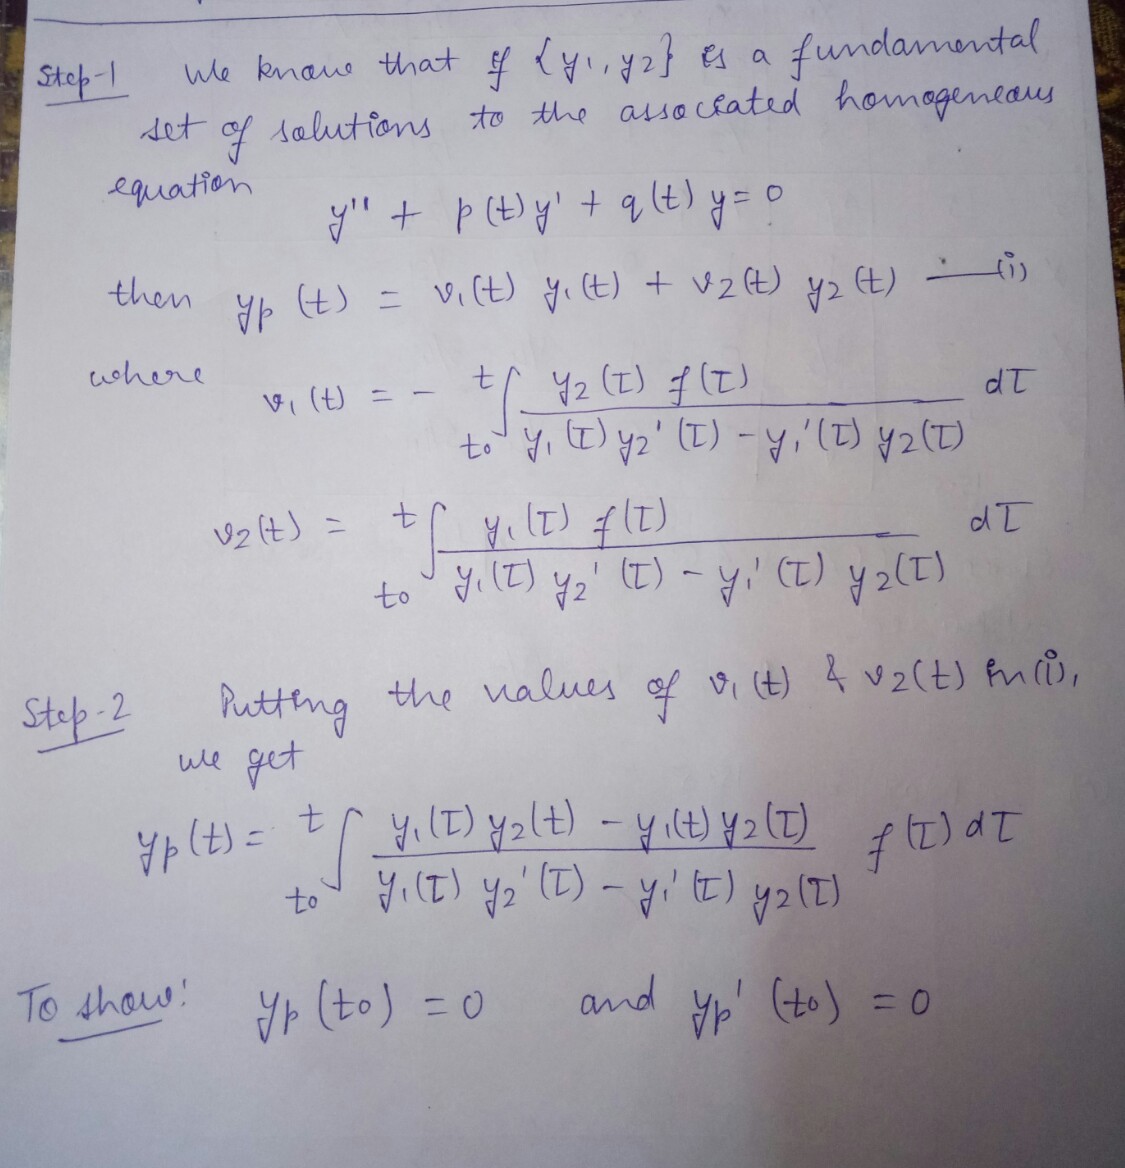 Step-1 We know that if {y1, y2} is a fundamental
set of solutions to the associated homogeneous
equation
y'' + p(t)y' + q(t) y = 0
then yp (t) = v1(t) y1(t) + v2(t) y2(t) —(i)
where v1(t) = - ∫_{t0}^{t} y2(τ) f(τ) / y1(τ) y2'(τ) - y1'(τ) y2(τ) dτ
v2(t) = ∫_{t0}^{t} y1(τ) f(τ) / y1(τ) y2'(τ) - y1'(τ) y2(τ) dτ
Step-2 Putting the values of v1(t) & v2(t) in (i),
we get
yp(t) = ∫_{t0}^{t} y1(τ) y2(t) - y1(t) y2(τ) / y1(τ) y2'(τ) - y1'(τ) y2(τ) f(τ) dτ
To show: yp(t0) = 0 and yp'(t0) = 0